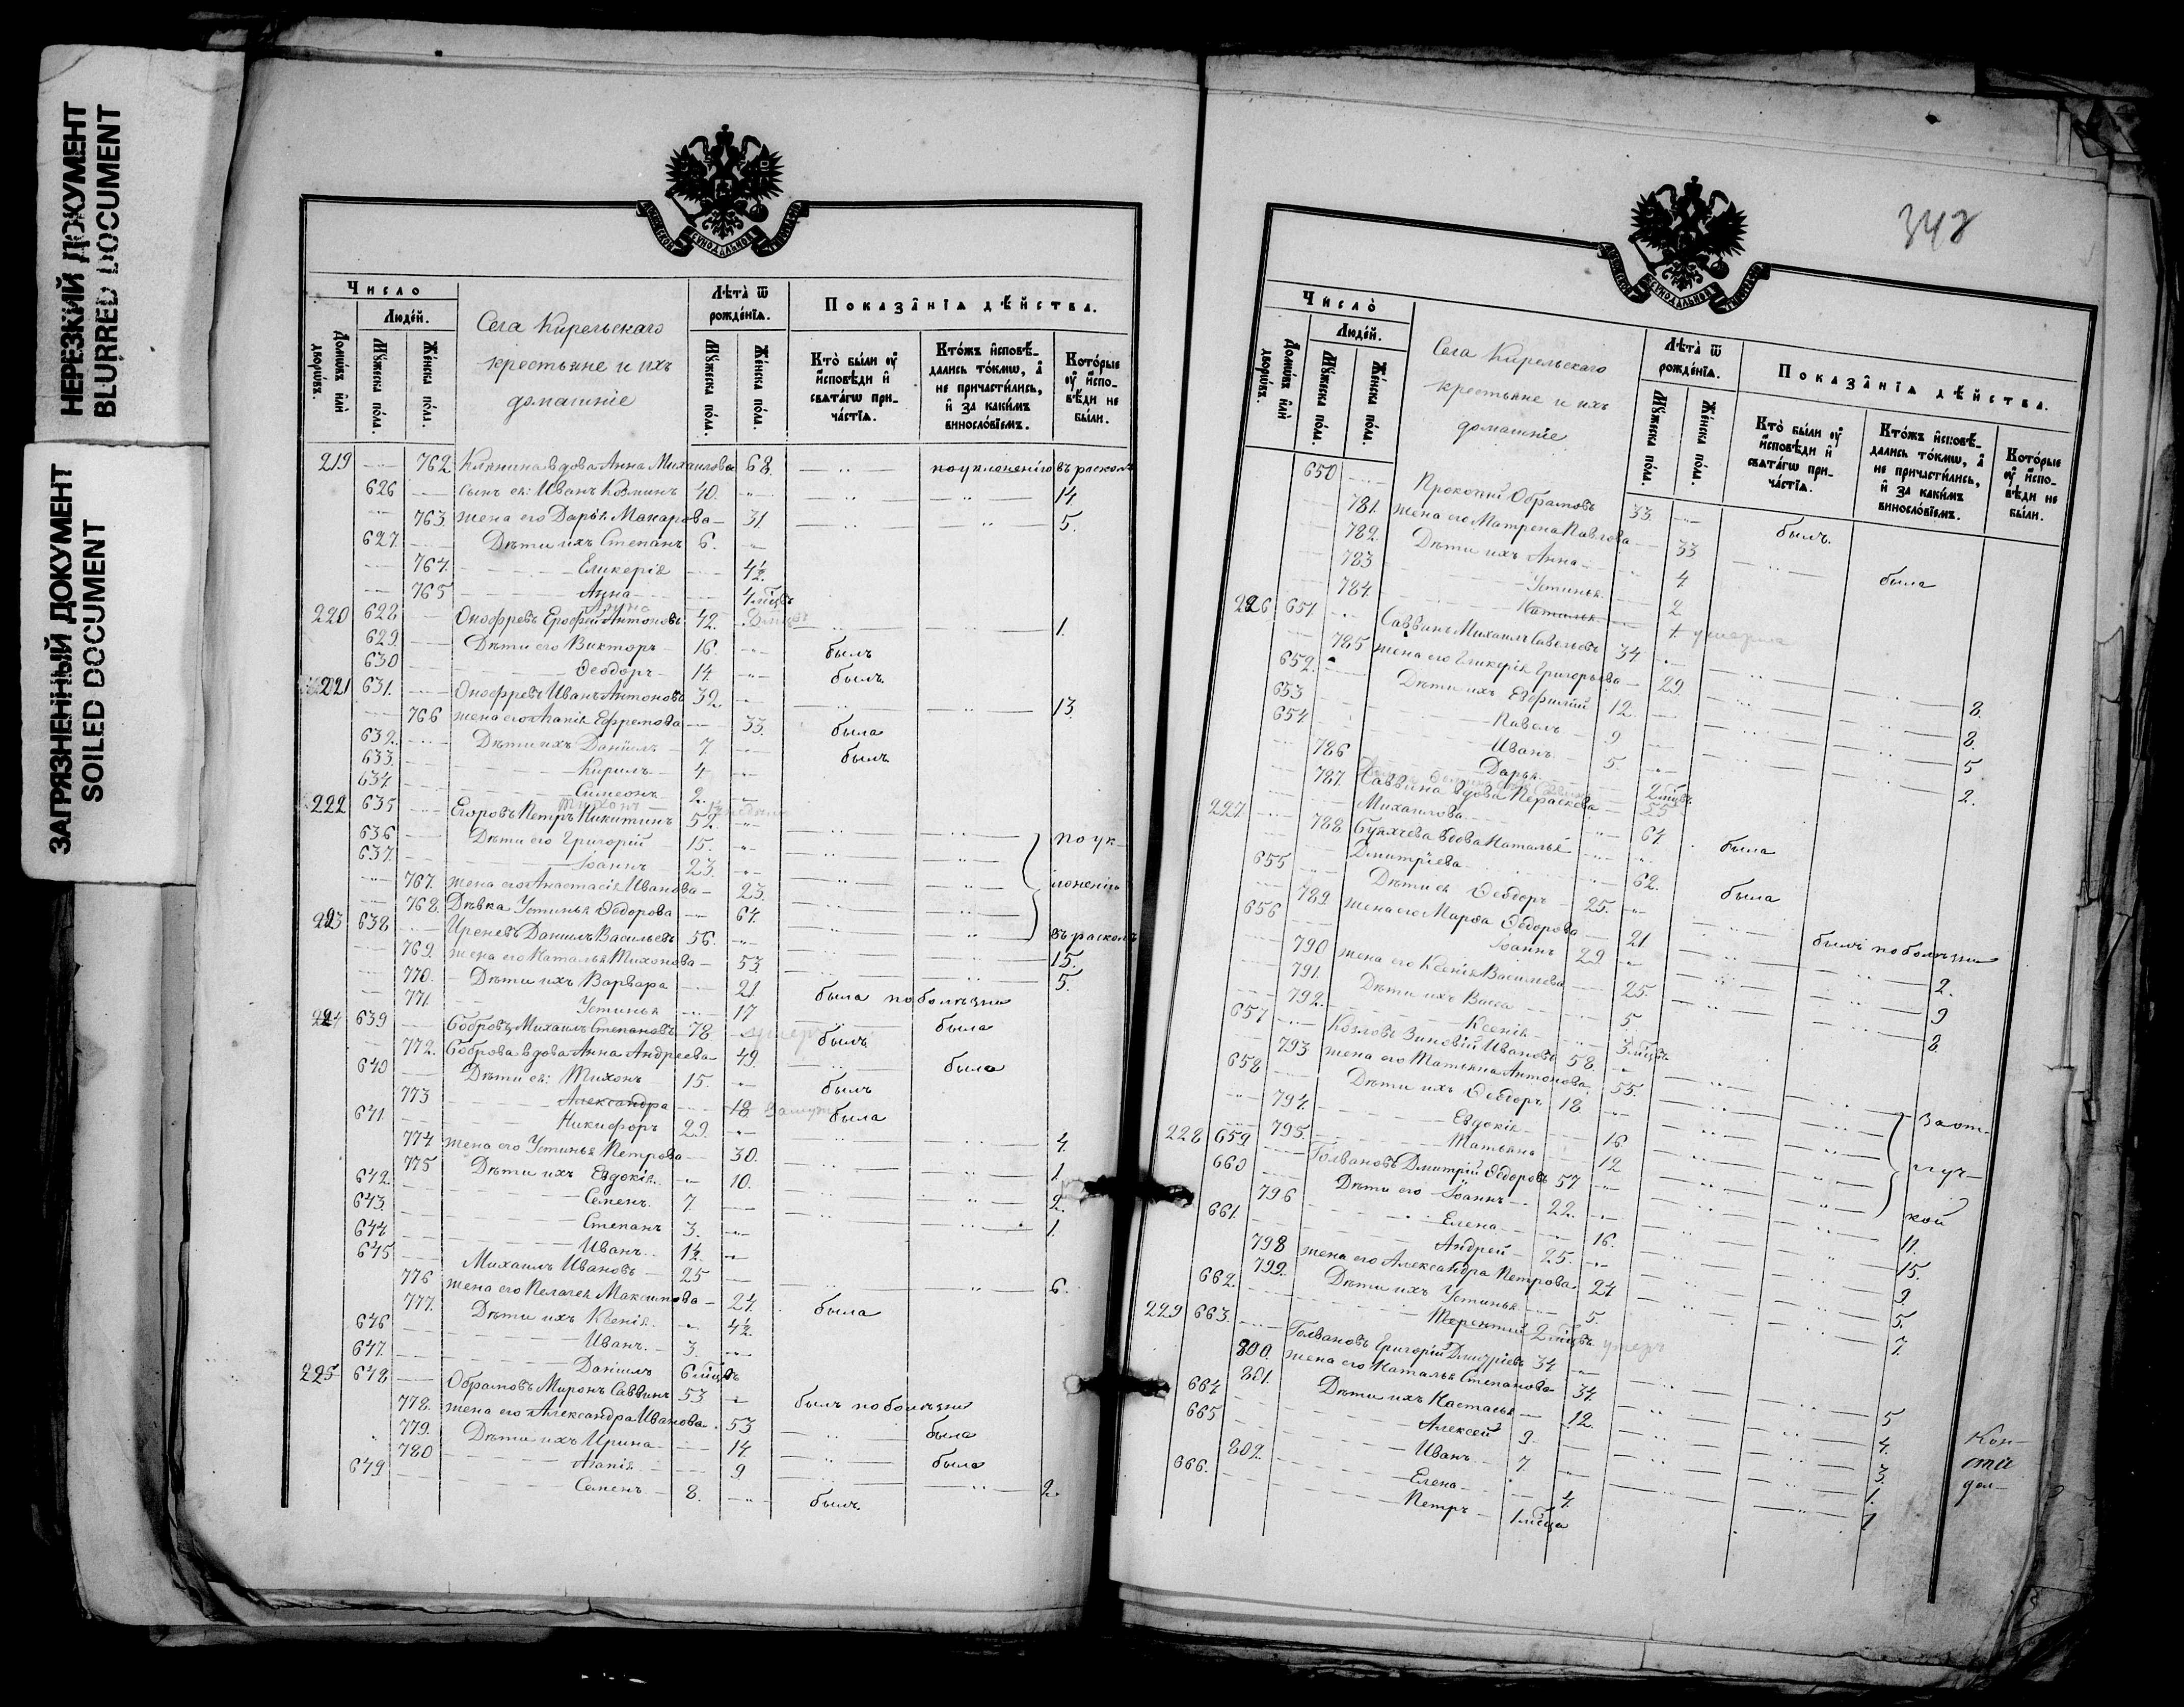 НЕРЕЗКИЙ ДОКУМЕНТ
BLURRED DOCUMENT
ЗАГРЯЗНЕННЫЙ ДОКУМЕНТ
SOILED DOCUMENT
Число
Людей.
Домѡвъ или дворѡвъ.
Мꙋжеска пола.
Женска пола.
Села Кирельскаго
крестьяне и ихъ
домашніе
Лѣта ѿ рожденїѧ.
Мꙋжеска пола.
Женска пола.
Показанїѧ дѣйства.
Кто были оу исповѣди и свѧтагѡ причастїѧ.
Ктожъ исповѣдались токмѡ, а не причастились, и за какимъ винословїемъ.
Которые оу исповѣди не были.
219 762 вдова Анна Михаилова 68. по уклоненію въ расколъ
626 сынъ ея: Иванъ Козминъ 40. 14.
763. жена его Дарья Макарова 31. 5.
627. Дѣти ихъ Степанъ 6.
764. Гликерія 4½
765 Анна 4 мѣсцвъ
220 628 Онофревъ Ерофей Антоновъ 42. 1.
629. Дѣти его Викторъ 16. былъ
630 Ѳеодоръ 14. былъ
221 631. Онофревъ Иванъ Антоновъ 32. 13.
766 жена его Агапія Ефремова 33. была
632. Дѣти ихъ Даніилъ 7. былъ
633. Кирилъ 4
634. Симеонъ 2.
Тихонъ
222 635 Егоровъ Петръ Никитинъ 52. по ук-
636 Дѣти его Григорій 15.
637. Іоаннъ 23.
767. жена его Анастасія Иванова 23. лоненію
768. Дѣвка Устинья Ѳедорова 64.
223 638 Даніилъ Васильевъ 56. въ расколъ
769. жена его Наталья Тихонова 53. 15.
770. Дѣти ихъ Варвара 21. 5.
771 Устинья 17 была по болѣзни
224 639 Бобровъ Михаилъ Степановъ 78. умеръ была
772. Боброва вдова Анна Андреева 49. былъ
640 Дѣти ея: Тихонъ 15. была
773 Александра 18 былъ
641 Никифоръ 29. была
774 жена его Устинья Петрова 30. 4.
775 Дѣти ихъ Евдокія 10. 1
642. Семенъ 7. 2.
643. Степанъ 3. 1.
644 Иванъ 1½
645 Михаилъ Ивановъ 25
776 жена его Пелагея Максимова 24. 6.
777. Дѣти ихъ Ксенія 4½ была
646 Иванъ 3.
647. Даніилъ 6 мѣсцвъ
225 648 Обрамовъ Миронъ Саввинъ 53 былъ по болѣзни
778. жена его Александра Иванова 53
779. Дѣти ихъ Ирина 14 была
780 Агапія 9 была
649 Семенъ 8. былъ 2.
342
Число
Людей.
Домѡвъ или дворѡвъ.
Мꙋжеска пола.
Женска пола.
Села Кирельскаго
крестьяне и ихъ
домашніе
Лѣта ѿ рожденїѧ.
Мꙋжеска пола.
Женска пола.
Показанїѧ дѣйства.
Кто были оу исповѣди и свѧтагѡ причастїѧ.
Ктожъ исповѣдались токмѡ, а не причастились, и за какимъ винословїемъ.
Которые оу исповѣди не были.
650 Прокопій Обрамовъ 33. былъ.
781. жена его Матрена Павлова 33 была
782. Дѣти ихъ Анна 4
783 Устинья 2
784. Наталья 1 умерла
226 651. Саввинъ Михаилъ Савельевъ 34. 8.
785 жена его Гликерія Григорьева 29. 8.
652. Дѣти ихъ 12. 5
653 Павелъ 9 2.
654. Иванъ 5.
786 Дарья 2 мѣсцвъ
787. Саввина вдова Параскева
Михаилова 64 была
227. 788 вдова Наталья
Дмитріева 62. была
655 Дѣти ея Ѳеодоръ 25. былъ по болѣзни
789. жена его Марѳа Ѳедорова 21 2.
656 Іоаннъ 29. 9
790 жена его Ксенія Васильева 25. 8.
791. Дѣти ихъ Васса 5.
792. Ксенія 3 мѣсцвъ
657 Козловъ Зиновій Ивановъ 58. За от-
793 жена его Татьяна Антонова 55.
658 Дѣти ихъ Ѳеодоръ 18. луч-
794. Евдокія 16.
795. Татьяна 12 кой
228 659 Голвановъ Дмитрій Ѳедоровъ 57 11.
660 Дѣти его Іоаннъ 22. 15.
796 Елена 16. 9
661. Андрей 25. 5.
798 жена его Александра Петрова 24 7.
799. Дѣти ихъ Устинья 5.
662. Терентій 2 мѣсцвъ
229 663. Голвановъ Григорій Дмитріевъ 34 5
800. жена его Наталья Степанова 34. 4.
801. Дѣти ихъ Настасья 12. 3.
664 Алексей 9. 1.
665 Иванъ 7. 1
802. Елена 4.
666. Петръ 1 мѣсца